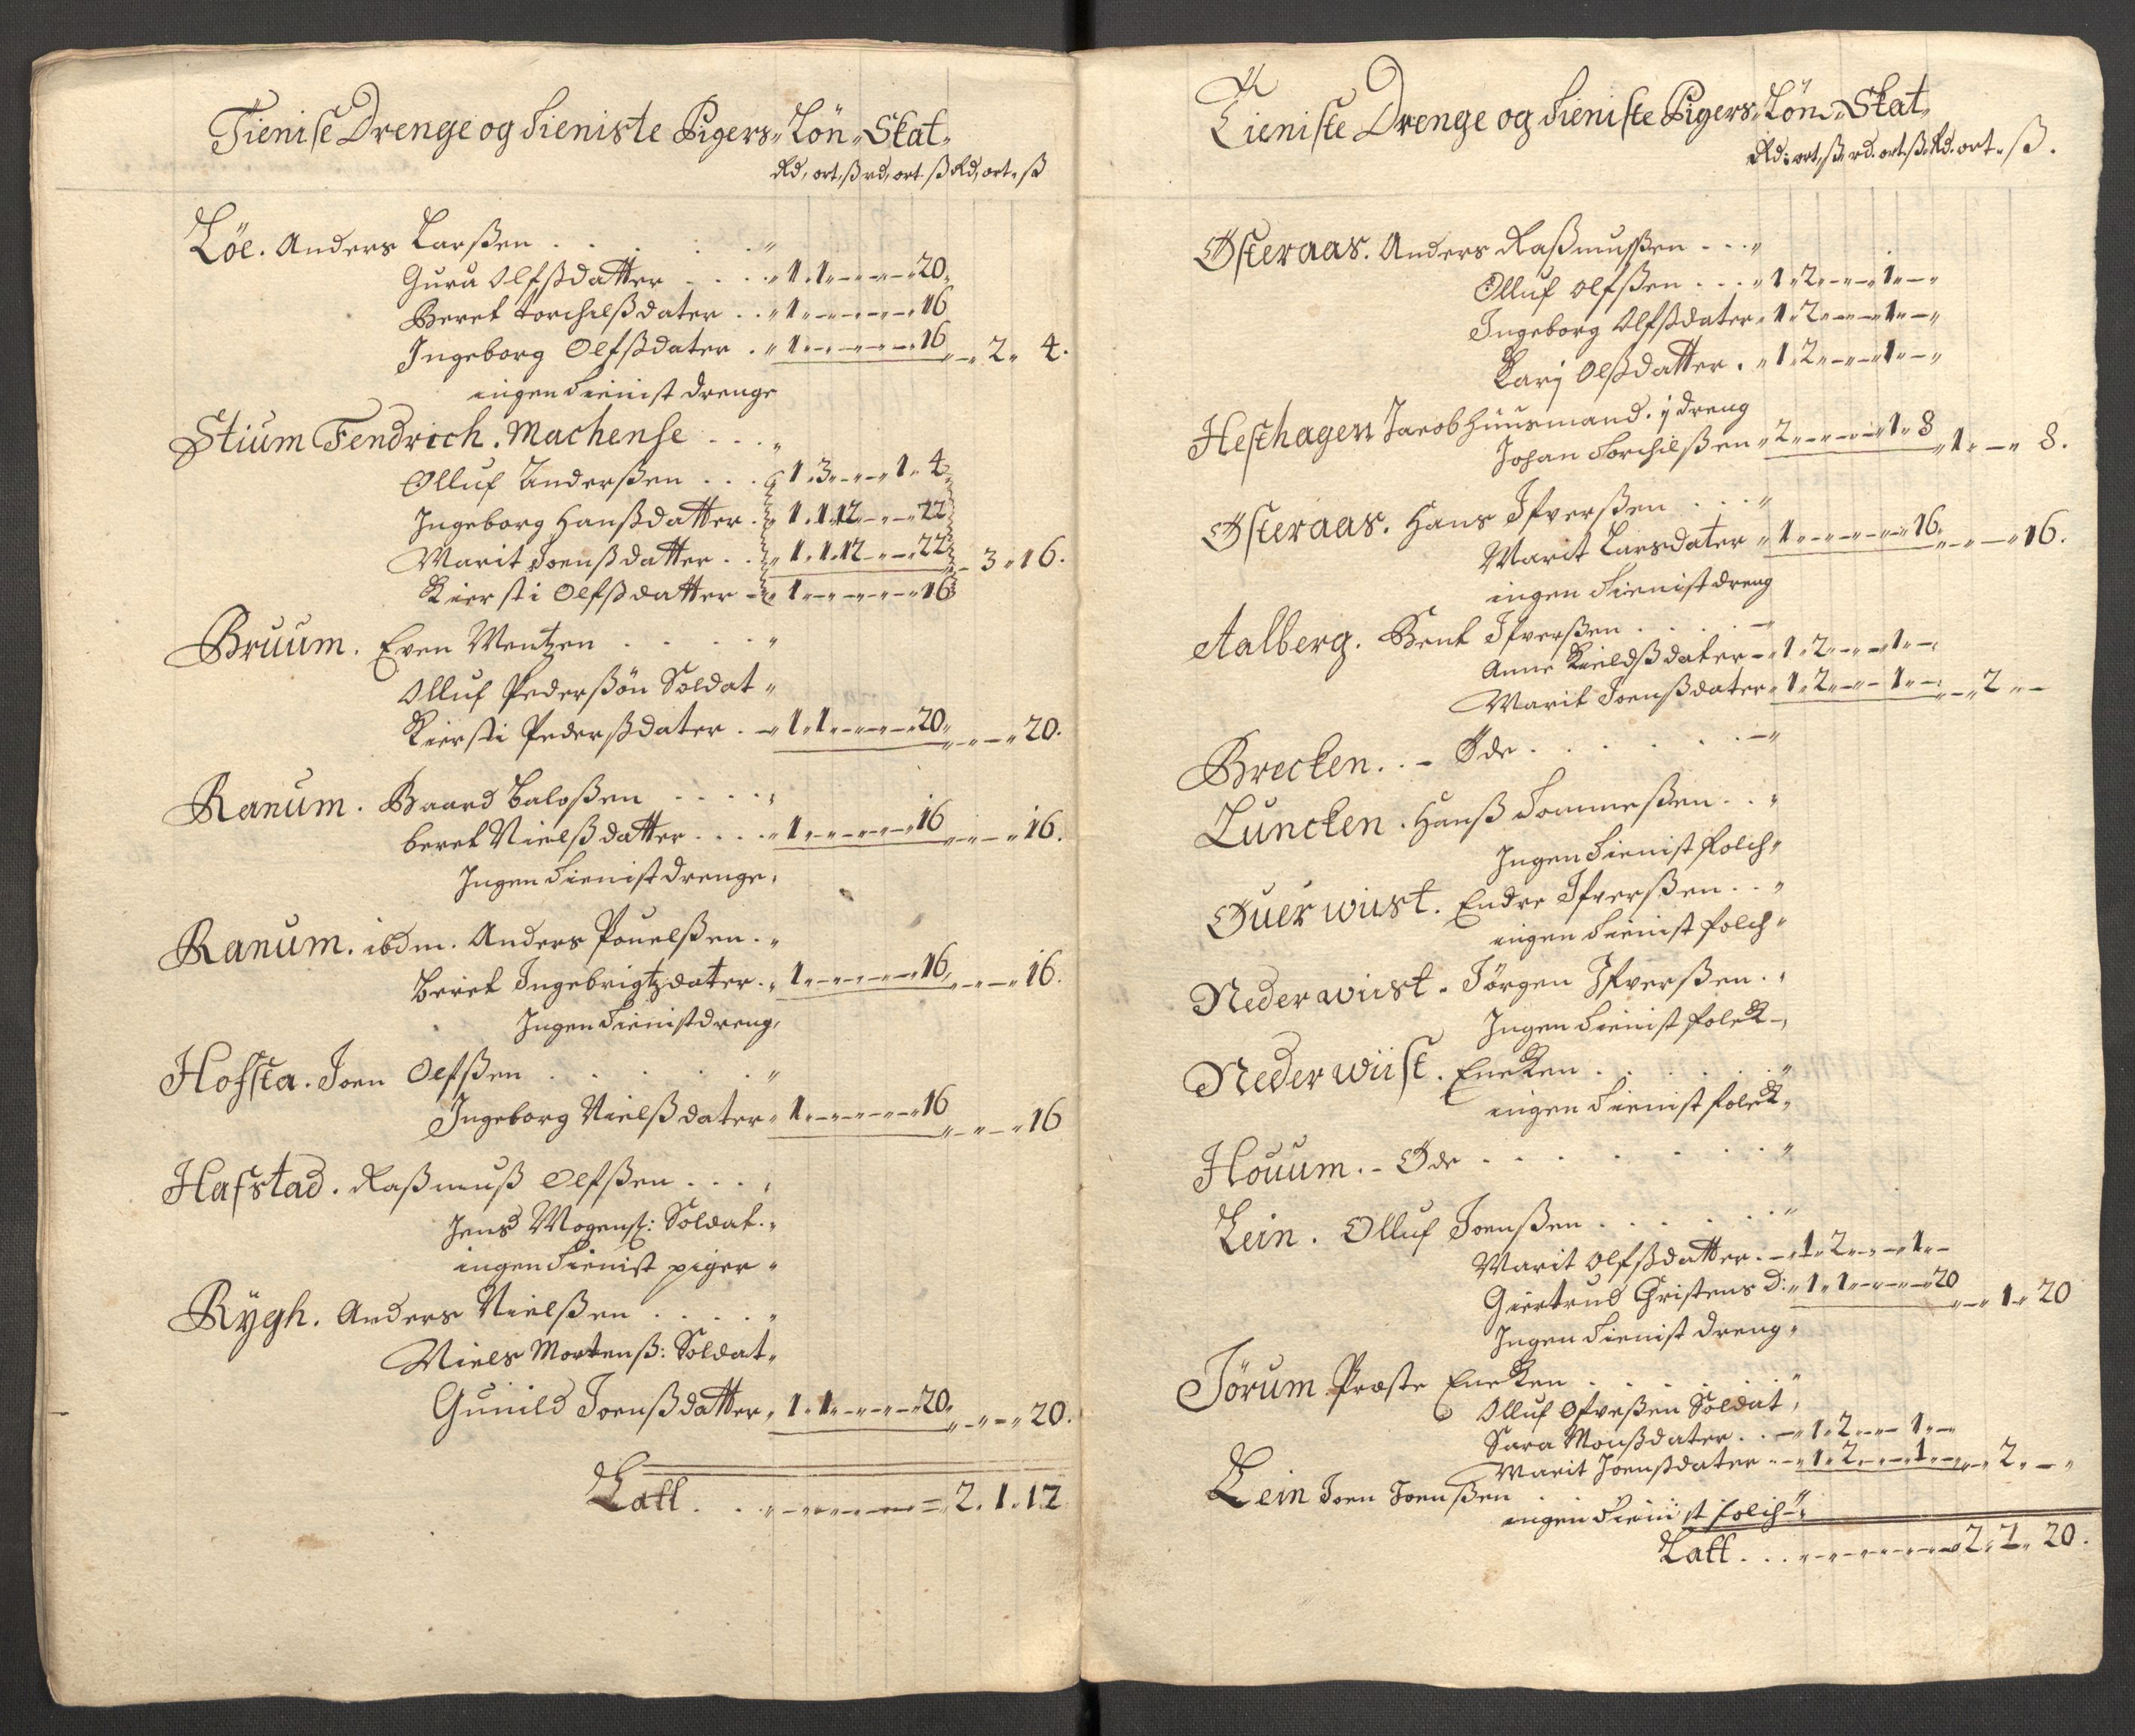 Tieniste Drenge og tieniste Pigers Lön Skat
Rd, ort, ß rd, ort ß Rd, ort, ß
Löe. Anders Larßen . . . . . "
Guru Olfßdatter . . . " 1. 1 " - " - " 20
Beret torchilßdater . . " 1 " - " - " - " 16
Ingeborg Olfßdater . " 1 " - " - " - " 16 " - " 2 " 4.
ingen tienist drenge
Stium Fendrich. Machense . . . "
Olluf Anderßen . . . 1. 3 " - " 1. 4
Ingeborg Hanßdatter . 1. 1. 12 " - " 22
Marit Joenßdatter . . 1. 1. 12 " - " 22 " - 3 " 16.
Kiersti Olfßdatter - " 1 " - " - " - " 16
Bruum. Even Mentzen . . . . "
Olluf Pederßön Soldat "
Kiersti Pederßdater . - 1. 1 " - " - " 20 " - " - " 20.
Ranum. Baard Baloßen . . . . "
beret Nielßdatter . . . . " 1 " - " - " - " 16 " - " - " 16.
Ingen tienist drenge "
Ranum. ibdm. Anders Pouelßen . "
Beret Ingebrigtzdater . " 1 " - " - " - " 16 " - " - " 16.
Ingen tienist dreng "
Hofsta. Joen Olfßen . . . . . "
Ingeborg Nielßdater " 1 " - " - " - " 16 " - " - " 16
Hafstad. Raßmuß Olfßen . . . "
Jens Mogenß: Soldat . "
ingen tienist piger "
Rÿgh. Anders Nielßen . . . . "
Niels Mortenß: Soldat "
Gunild Joenßdatter " 1. 1 " - " - " 20 " - " - " 20.
Latt . . " - " - " - " - = 2. 1. 12
Tieniste Drenge og tieniste Pigers Lön Skat
Rd: ort, ß, rd. ort. ß Rd. ort. ß.
Østeraas. Anders Raßmusßen . . . "
Olluf Olfßen . . . " 1. 2 " - " - 1 " - "
Ingeborg Olfßdater " 1. 2 " - " - 1 " - "
Karj Olßdatter . " 1. 2 " - " - 1 " - "
Hesthagen Jacob Huusmand. j dreng
Johan Torchilßen " 2 " - " - " - 1. 8 " 1 " - " 8.
Østeraas. Hans Ifverßen . . . "
Marit Larsdater " 1 " - " - " - " 16 " - " - 16.
ingen tienist dreng
Aalberg. Bent Ifverßen . . . . -
Anne Kieldßdater - " 1. 2 " - " - 1 " -
Marit Joenßdater " 1. 2 " - " - 1 " - " - " 2 " -
Brecken. . - Øde . . . . . . - "
Luncken. Hanß Tommeßen . . "
Ingen tienist folch "
Øuer wust. Endre Ifverßen . . "
ingen tienist folch "
Neder wiist. Jörgen Ifverßen . "
Ingen tienist folck - "
Neder wiist. Encken . . . . . "
ingen tienist folck "
Houum. - Øde . . . . . . . "
Lein. Olluf Joenßen . . . . . "
Marit Olfßdatter . - " 1. 2 " - " - 1 " -
Giertrud Christens D: " 1. 1 " - " - " 20 " - " 1 " 20
Ingen tienist dreng "
Jörum Præste Encken . . . . . "
Olluf Ofveßen Soldat "
Sara Monßdater . . - " 1. 2 " - " - 1 " -
Marit Joenßdater . - " 1. 2 " - " - 1 " - " - " 2 " - "
Lein Joen Joenßen . "
ingen tienist folch - "
Latt . . . " - " - " - " - " 2. 2. 20.